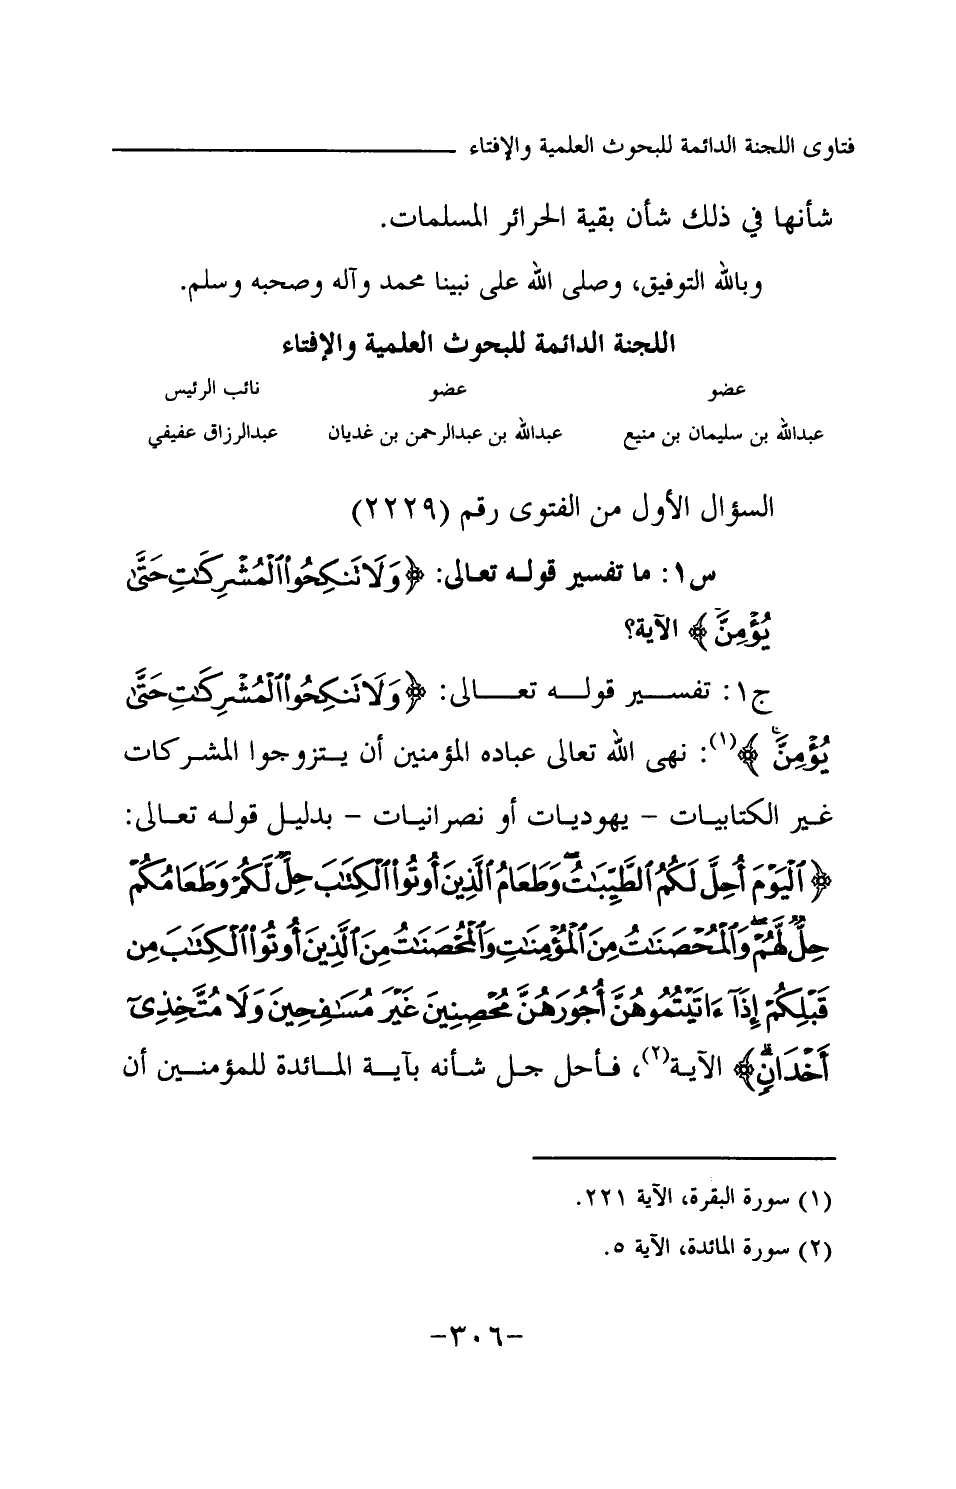 فتاوى اللجنة الدائمة للبحوث العلمية والإفتاء
شأنها في ذلك شأن بقية الحرائر المسلمات.
وبالله التوفيق، وصلى الله على نبينا محمد وآله وصحبه وسلم.
اللجنة الدائمة للبحوث العلمية والإفتاء
عضو عضو نائب الرئيس
عبدالله بن سليمان بن منيع عبدالله بن عبدالرحمن بن غديان عبدالرزاق عفيفي
السؤال الأول من الفتوى رقم (٢٢٢٩)
س١: ما تفسير قوله تعالى: ﴿وَلَا تَنكِحُوا۟ ٱلْمُشْرِكَٰتِ حَتَّىٰ
يُؤْمِنَّ﴾ الآية؟
ج١: تفسير قوله تعالى: ﴿وَلَا تَنكِحُوا۟ ٱلْمُشْرِكَٰتِ حَتَّىٰ
يُؤْمِنَّ﴾(١): نهى الله تعالى عباده المؤمنين أن يتزوجوا المشركات
غير الكتابيات – يهوديات أو نصرانيات – بدليل قوله تعالى:
﴿ٱلْيَوْمَ أُحِلَّ لَكُمُ ٱلطَّيِّبَٰتُ ۖ وَطَعَامُ ٱلَّذِينَ أُوتُوا۟ ٱلْكِتَٰبَ حِلٌّ لَّكُمْ وَطَعَامُكُمْ
حِلٌّ لَّهُمْ ۖ وَٱلْمُحْصَنَٰتُ مِنَ ٱلْمُؤْمِنَٰتِ وَٱلْمُحْصَنَٰتُ مِنَ ٱلَّذِينَ أُوتُوا۟ ٱلْكِتَٰبَ مِن
قَبْلِكُمْ إِذَآ ءَاتَيْتُمُوهُنَّ أُجُورَهُنَّ مُحْصِنِينَ غَيْرَ مُسَٰفِحِينَ وَلَا مُتَّخِذِىٓ
أَخْدَانٍ ۗ﴾ الآية(٢)، فأحل جل شأنه بآية المائدة للمؤمنين أن
(١) سورة البقرة، الآية ٢٢١.
(٢) سورة المائدة، الآية ٥.
-٣٠٦-